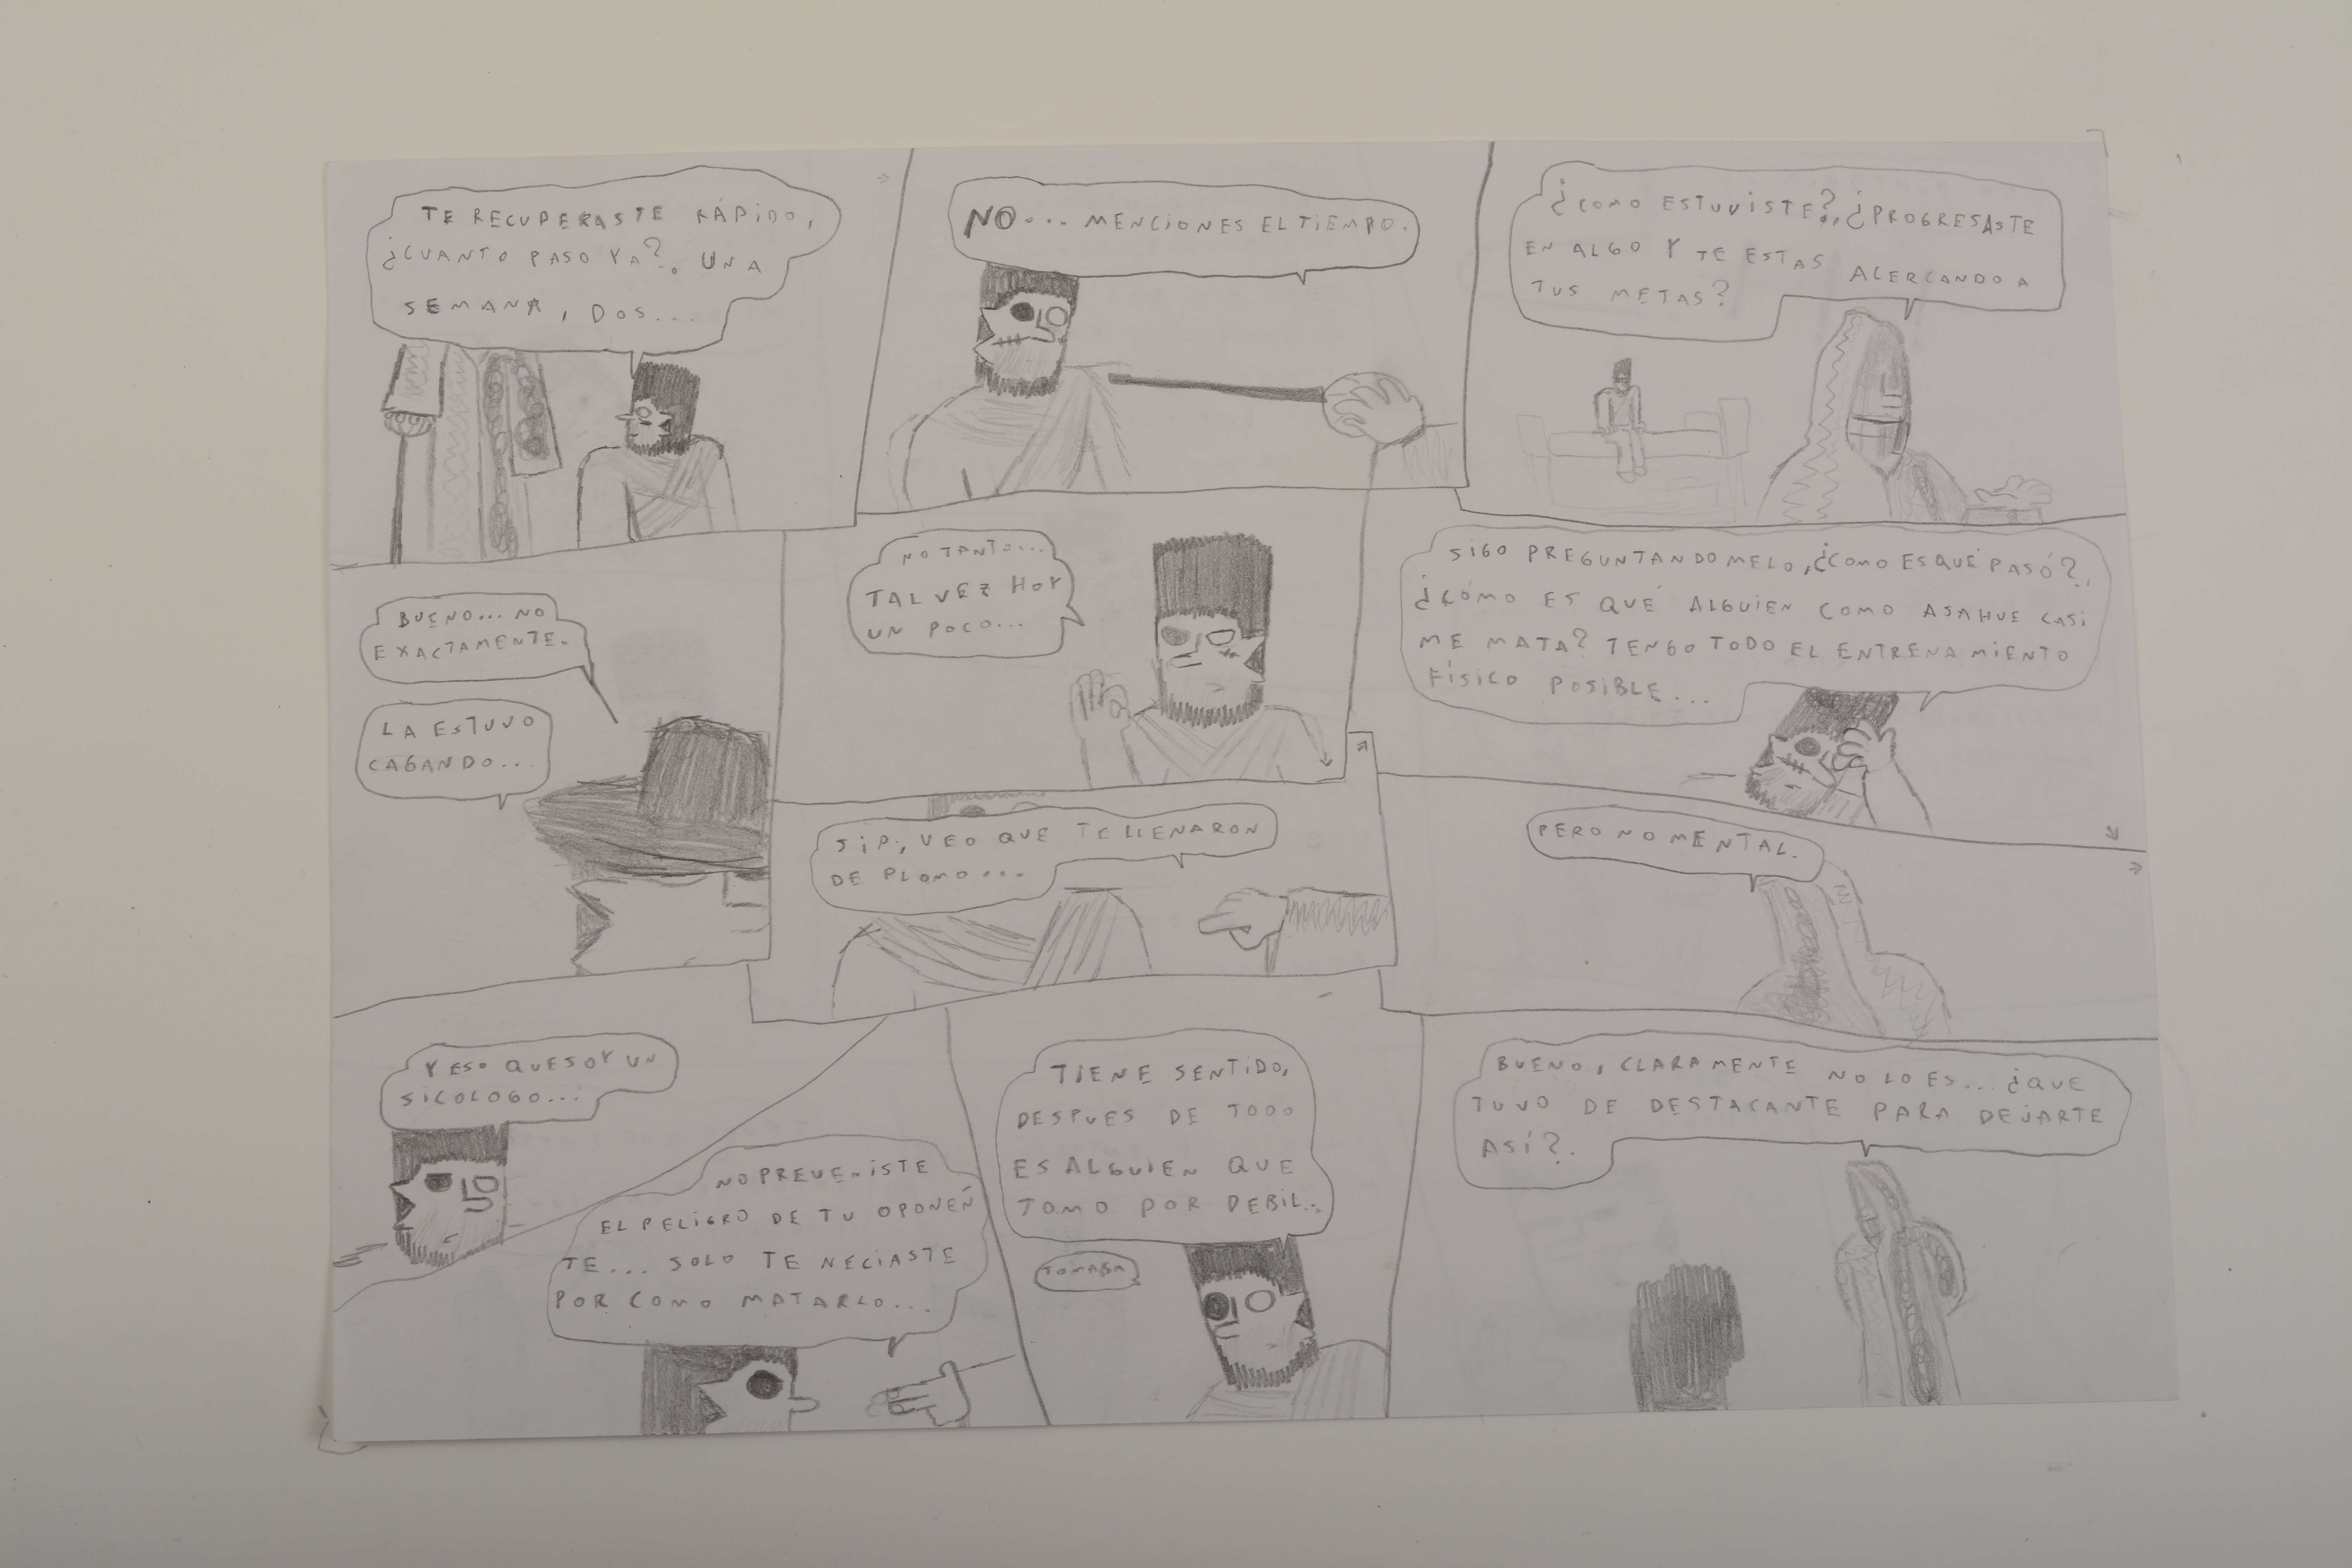 TE RECUPERASTE RÁPIDO,
¿CUANTO PASO YA?. UNA
SEMANA, DOS...
NO... MENCIONES EL TIEMPO.
¿COMO ESTUVISTE?, ¿PROGRESASTE
EN ALGO Y TE ESTAS ACERCANDO A
TUS METAS?
BUENO... NO
EXACTAMENTE.
LA ESTUVO
CAGANDO...
NO TANTO...
TAL VEZ HOY
UN POCO...
SIP, VEO QUE TE LLENARON
DE PLOMO...
SIGO PREGUNTANDOMELO, ¿COMO ES QUE PASÓ?,
¿CÓMO ES QUÉ ALGUIEN COMO ASAHUE CASI
ME MATA? TENGO TODO EL ENTRENAMIENTO
FÍSICO POSIBLE...
PERO NO MENTAL.
Y ESO QUE SOY UN
SICOLOGO...
NO PREVENISTE
EL PELIGRO DE TU OPONEN
TE... SOLO TE NECIASTE
POR COMO MATARLO...
TIENE SENTIDO,
DESPUES DE TODO
ES ALGUIEN QUE
TOMO POR DEBIL..
TOMABA
BUENO, CLARAMENTE NO LO ES... ¿QUE
TUVO DE DESTACANTE PARA DEJARTE
ASÍ?.